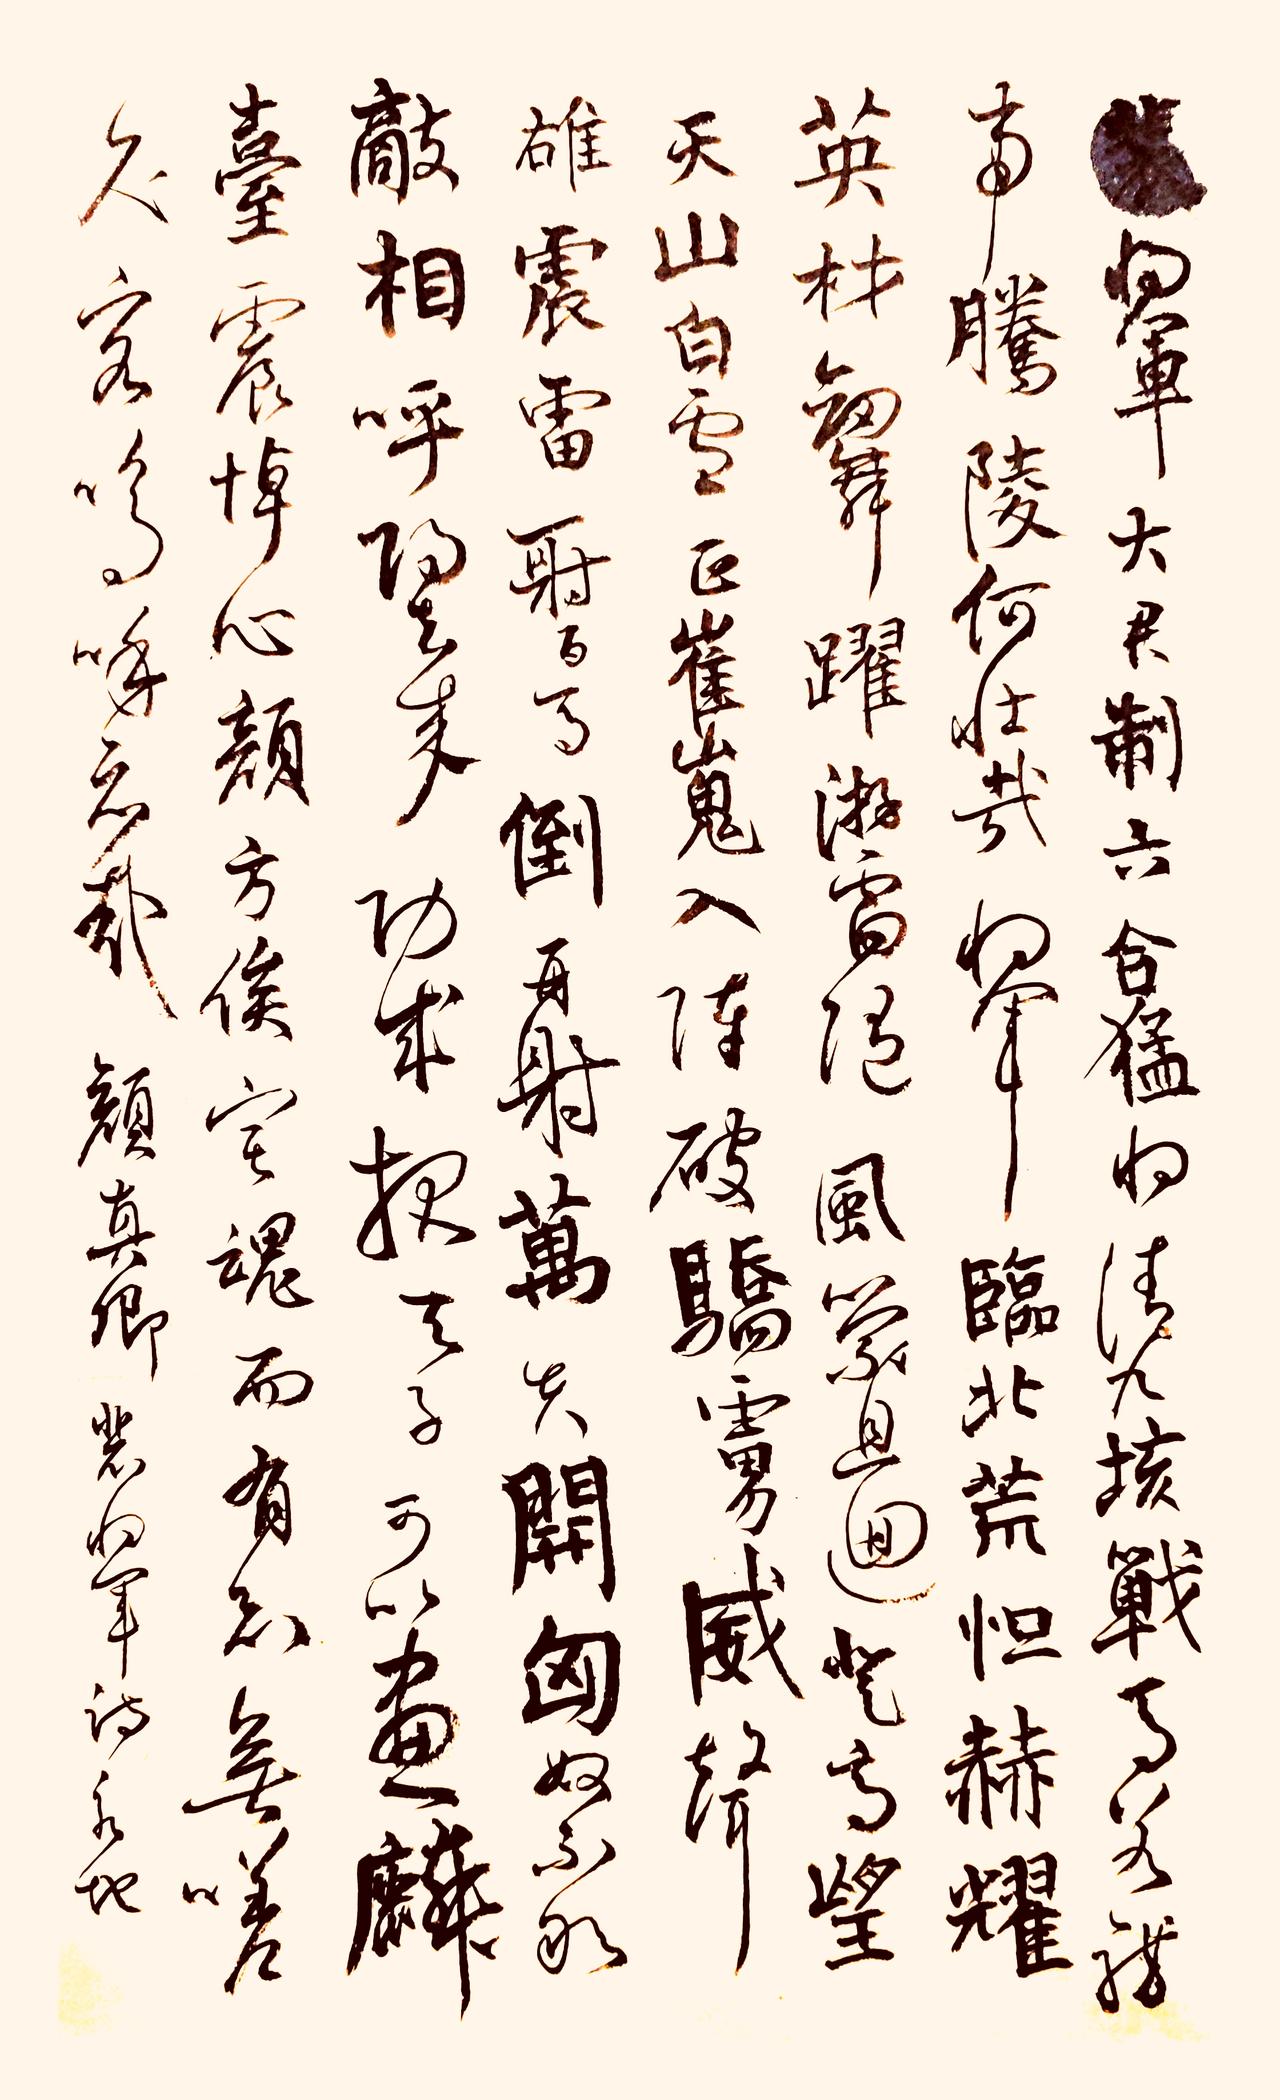 將軍大君制六合猛將清九垓戰馬若龍
虎騰陵何壯哉將軍臨北荒怛赫耀
英材劒舞躍游雷隨風縈且迴登高望
天山白雪正崔嵬入陣破驕虜威聲
雄震雷一射百馬倒再射萬夫開匈奴不敢
敵相呼歸去來功成報天子可以畫麟
臺震悼心顏方俟宅魂而有知無嗟
久客嗚呼哀哉顏真卿裴將軍詩永地